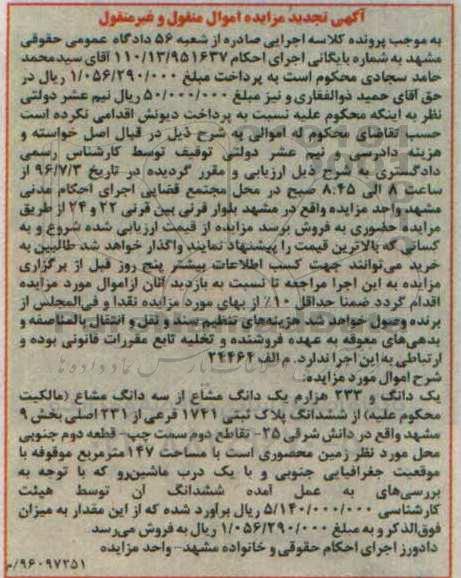 آگهی تجدید مزایده اموال منقول و غیرمنقول
به موجب پرونده کلاسه اجرایی صادره از شعبه ۵۶ دادگاه عمومی حقوقی
مشهد به شماره بایگانی اجرای احکام ۱۱۰/۱۳/۹۵۱۶۳۷ آقای سیدمحمد
حامد سجادی محکوم است به پرداخت مبلغ ۱/۰۵۶/۲۹۰/۰۰۰ ریال در
حق آقای حمید ذوالفقاری و نیز مبلغ ۵۰/۰۰۰/۰۰۰ ریال نیم عشر دولتی
نظر به اینکه محکوم علیه نسبت به پرداخت دیونش اقدامی نکرده است
حسب تقاضای محکوم له اموالی به شرح ذیل در قبال اصل خواسته و
هزینه دادرسی و نیم عشر دولتی توقیف توسط کارشناس رسمی
دادگستری به شرح ذیل ارزیابی و مقرر گردیده در تاریخ ۹۶/۷/۳ از
ساعت ۸ الی ۸:۴۵ صبح در محل مجتمع قضایی اجرای احکام مدنی
مشهد واحد مزایده واقع در مشهد بلوار قرنی بین قرنی ۲۲ و ۲۴ از طریق
مزایده حضوری به فروش برسد مزایده از قیمت ارزیابی شده شروع و به
کسانی که بالاترین قیمت را پیشنهاد نمایند واگذار خواهد شد طالبین به
خرید می‌توانند جهت کسب اطلاعات بیشتر پنج روز قبل از برگزاری
مزایده به این اجرا مراجعه تا نسبت به بازدید آنان ازاموال مورد مزایده
اقدام گردد ضمنا حداقل ۱۰٪ از بهای مورد مزایده نقدا و فی‌المجلس از
برنده وصول خواهد شد هزینه‌های تنظیم سند و نقل و انتقال بالمناصفه و
بدهی‌های معوقه به عهده فروشنده و تخلیه تابع مقررات قانونی بوده و
ارتباطی به این اجرا ندارد. م الف ۲۴۴۶۴
شرح اموال مورد مزایده:
یک دانگ و ۲۳۳ هزارم یک دانگ مشاع از سه دانگ مشاع (مالکیت
محکوم علیه) از ششدانگ پلاک ثبتی ۱۷۴۱ فرعی از ۲۳۱ اصلی بخش ۹
مشهد واقع در دانش شرقی ۲۵- تقاطع دوم سمت چپ- قطعه دوم جنوبی
محل مورد نظر زمین محصوری است با مساحت ۱۴۷ مترمربع موقوفه با
موقعیت جغرافیایی جنوبی و با یک درب ماشین‌رو که با توجه به
بررسی‌های به عمل آمده ششدانگ آن توسط هیئت
کارشناسی ۵/۱۴۰/۰۰۰/۰۰۰ ریال برآورد شده که از این مقدار به میزان
فوق‌الذکر و به مبلغ ۱/۰۵۶/۲۹۰/۰۰۰ ریال به فروش می‌رسد.
دادورز اجرای احکام حقوقی و خانواده مشهد- واحد مزایده
۹۶۰۹۷۳۵۱/م